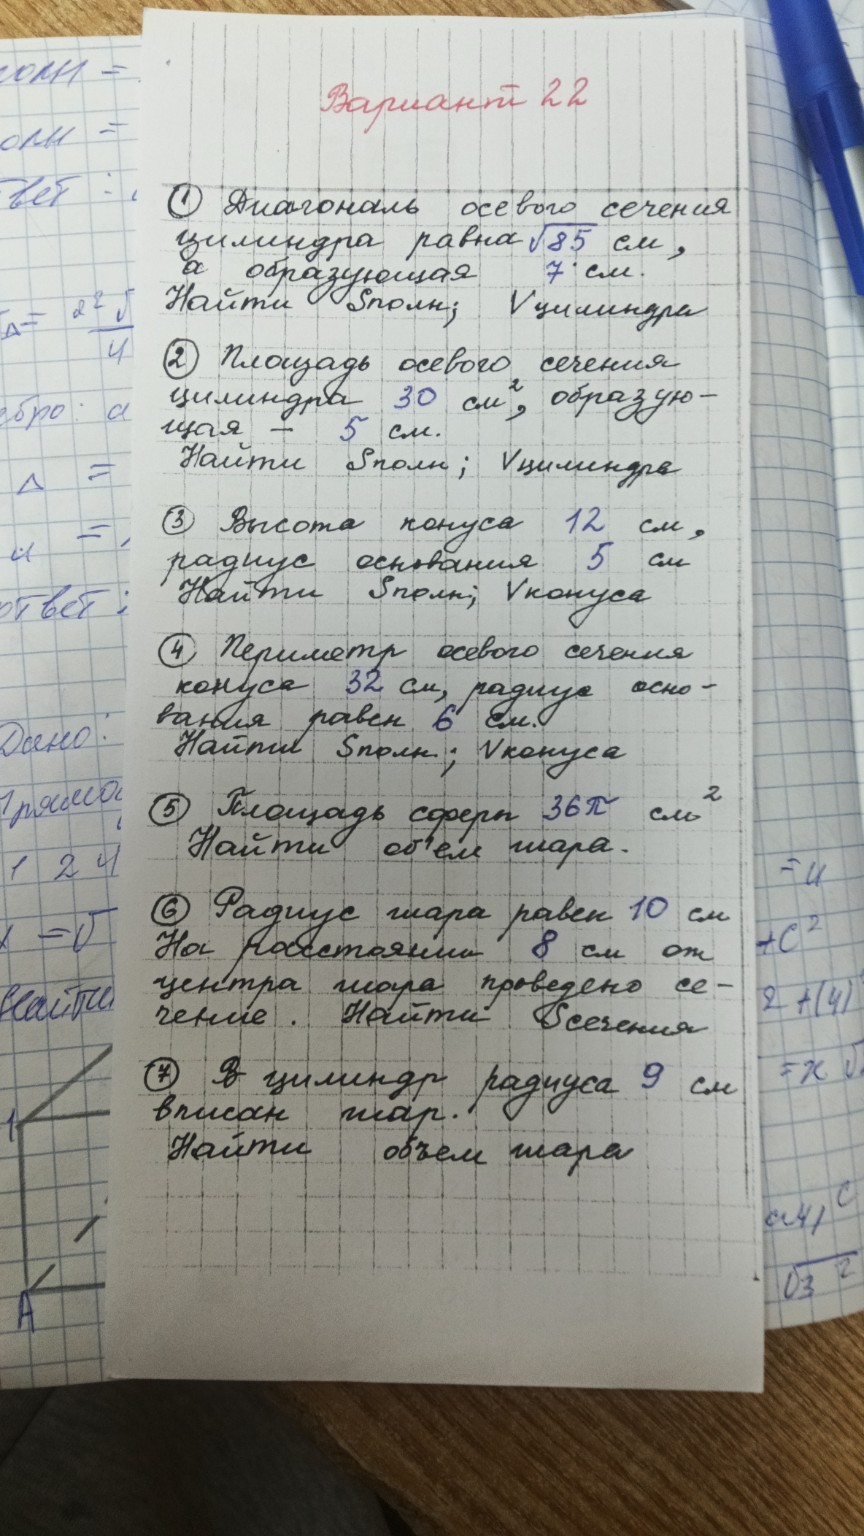 Вариант 22
① Диагональ осевого сечения
цилиндра равна √85 см,
а образующая 7 см.
Найти Sполн; Vцилиндра
② Площадь осевого сечения
цилиндра 30 см², образую-
щая – 5 см.
Найти Sполн; Vцилиндра
③ Высота конуса 12 см,
радиус основания 5 см
Найти Sполн; Vконуса
④ Периметр осевого сечения
конуса 32 см, радиус осно-
вания равен 6 см.
Найти Sполн.; Vконуса
⑤ Площадь сферы 36π см²
Найти об'ем шара.
⑥ Радиус шара равен 10 см
На расстоянии 8 см от
центра шара проведено се-
чение. Найти Sсечения
⑦ В цилиндр радиуса 9 см
вписан шар.
Найти объем шара
олн =
твет :
4
ебро: а
Δ =
и =
ответ:
Дано:
1 2 4
= √
Найти
1
А
= 4
+c²
2 + (4)
= x √
c
√3 2